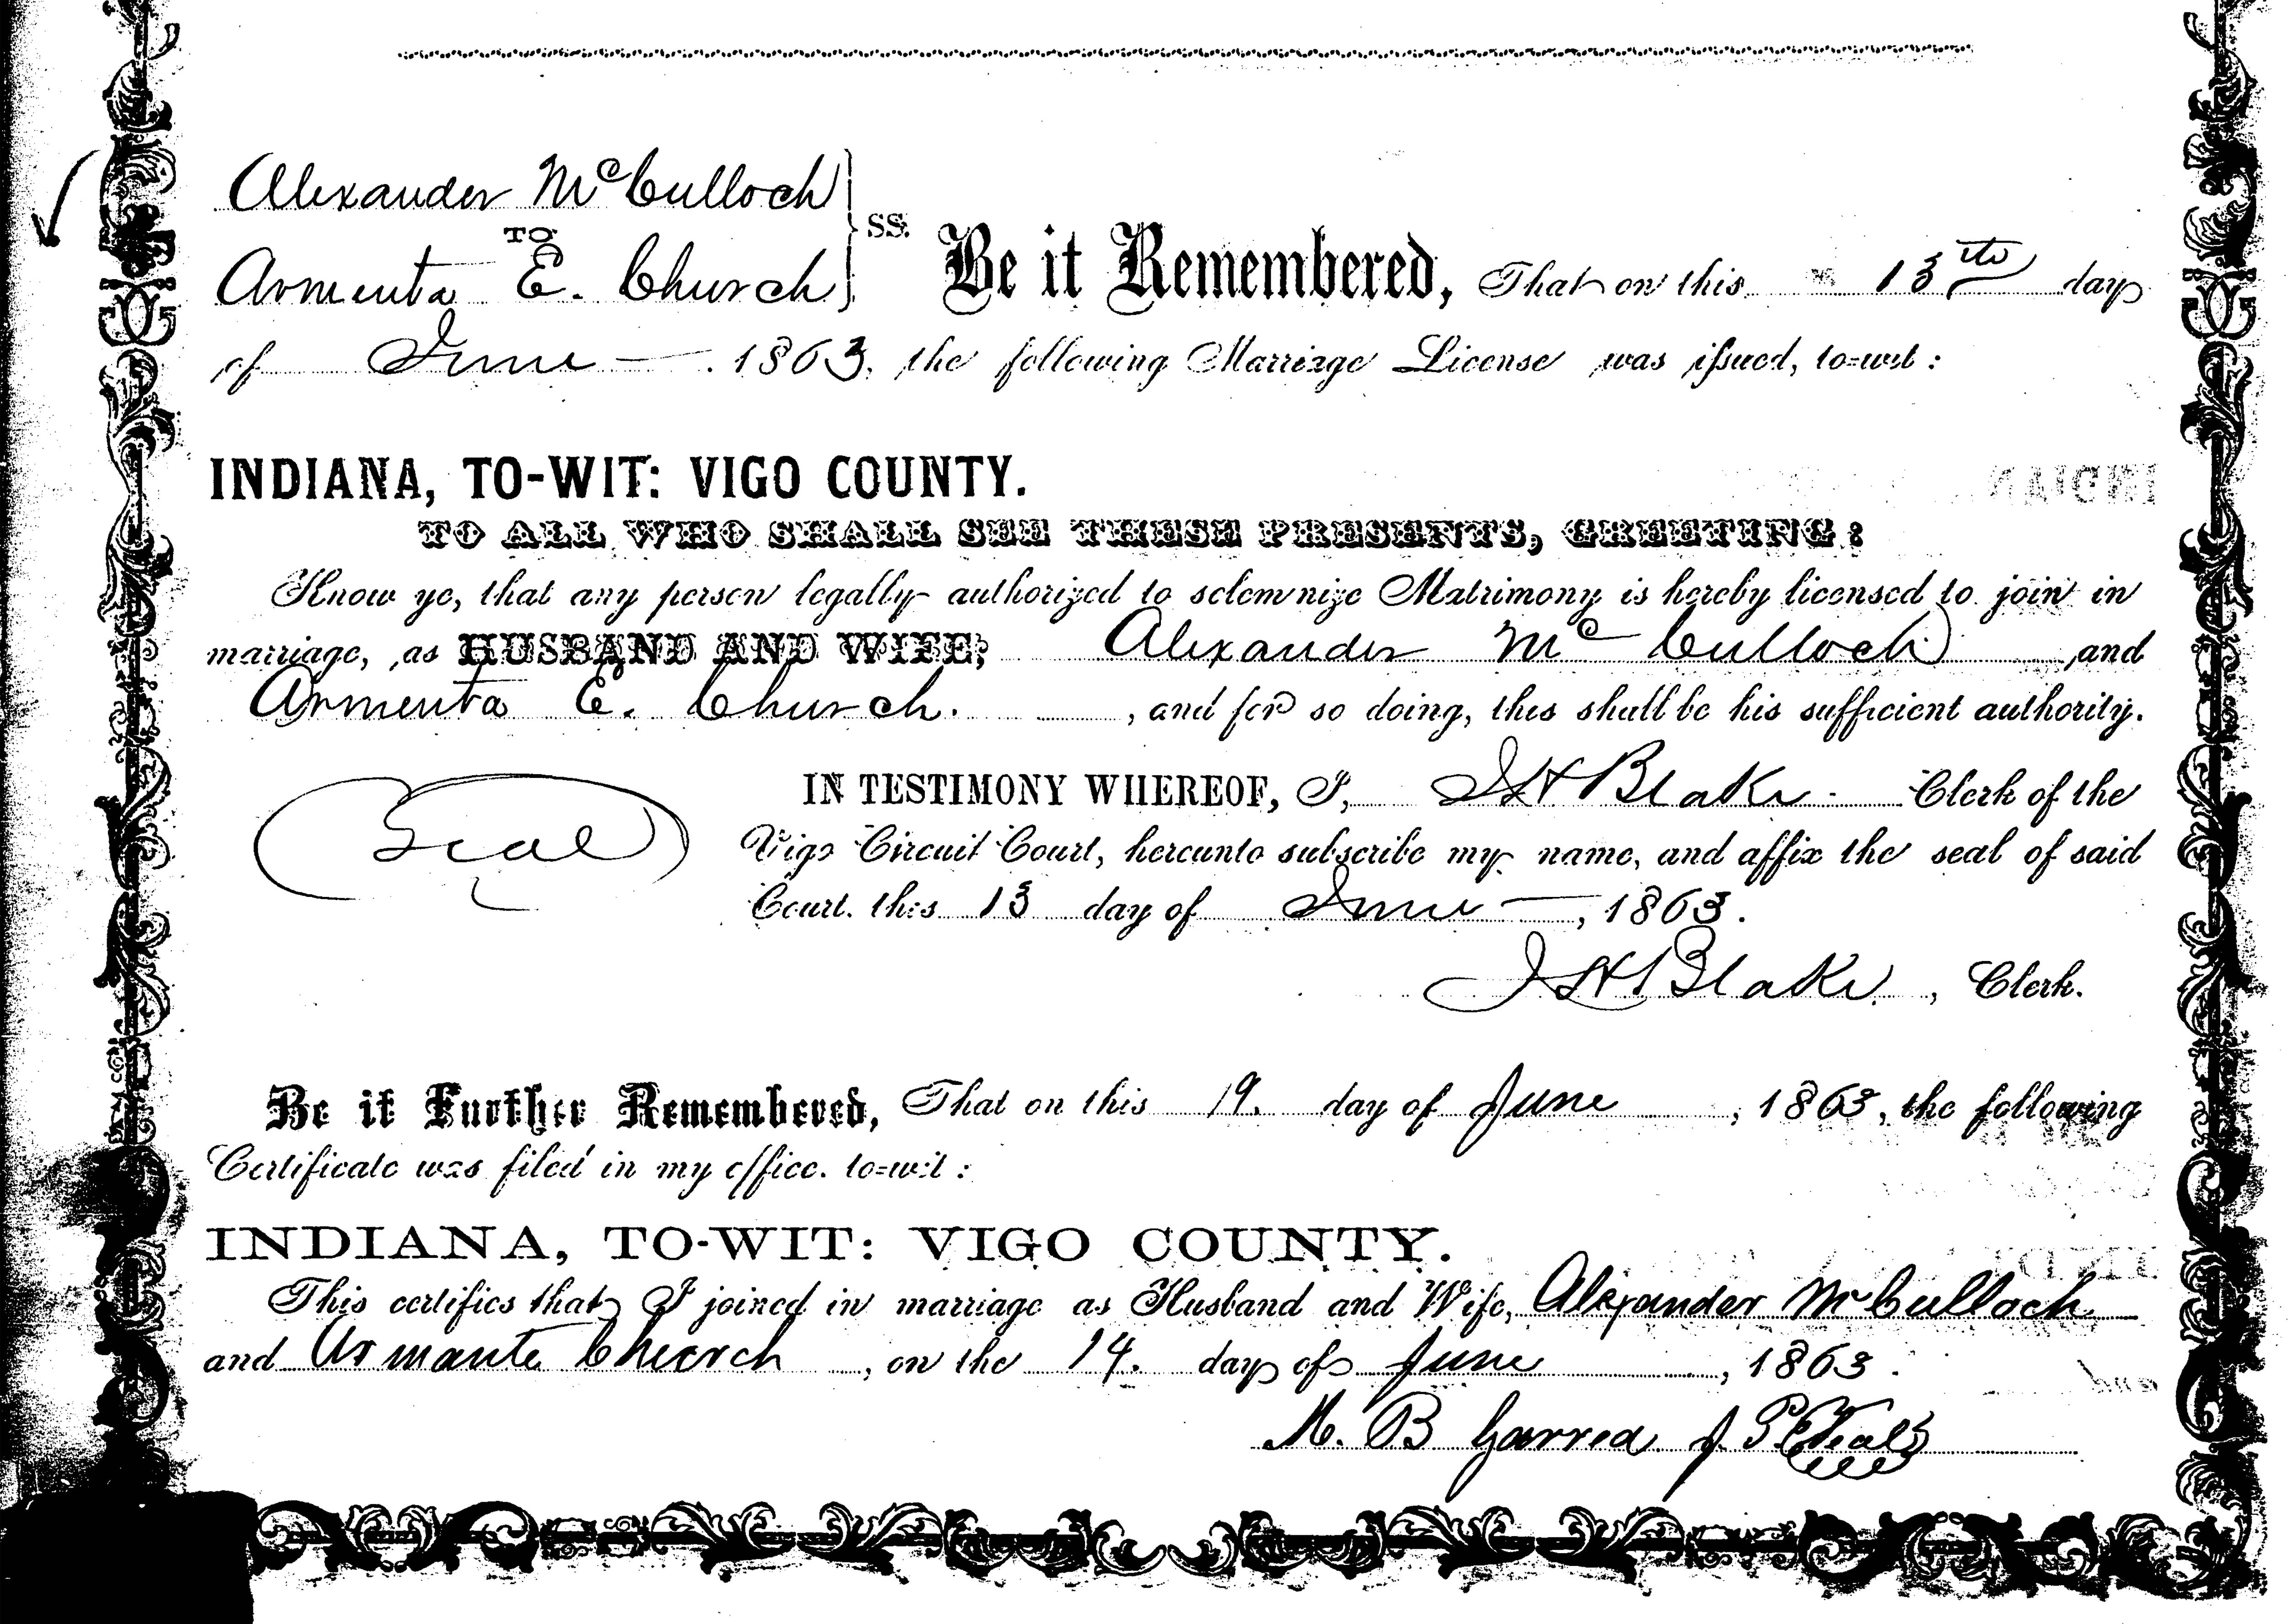 Alexander McCulloch
TO
Armenta E. Church
SS.
Be it Remembered, That on this 13th day
of June — 1863, the following Marriage License was issued, to-wit:
INDIANA, TO-WIT: VIGO COUNTY.
TO ALL WHO SHALL SEE THESE PRESENTS, GREETING:
Know ye, that any person legally authorized to solemnize Matrimony is hereby licensed to join in
marriage, as HUSBAND AND WIFE, Alexander McCulloch and
Armenta E. Church. , and for so doing, this shall be his sufficient authority.
IN TESTIMONY WHEREOF, I, J H Blake Clerk of the
Seal
Vigo Circuit Court, hereunto subscribe my name, and affix the seal of said
Court. this 13 day of June —, 1863.
J H Blake, Clerk.
Be it Further Remembered, That on this 19. day of June , 1863, the following
Certificate was filed in my office. to-wit:
INDIANA, TO-WIT: VIGO COUNTY.
This certifies that I joined in marriage as Husband and Wife, Alexander McCulloch
and Armante Church , on the 14. day of June , 1863.
B Garred J. P. Seal